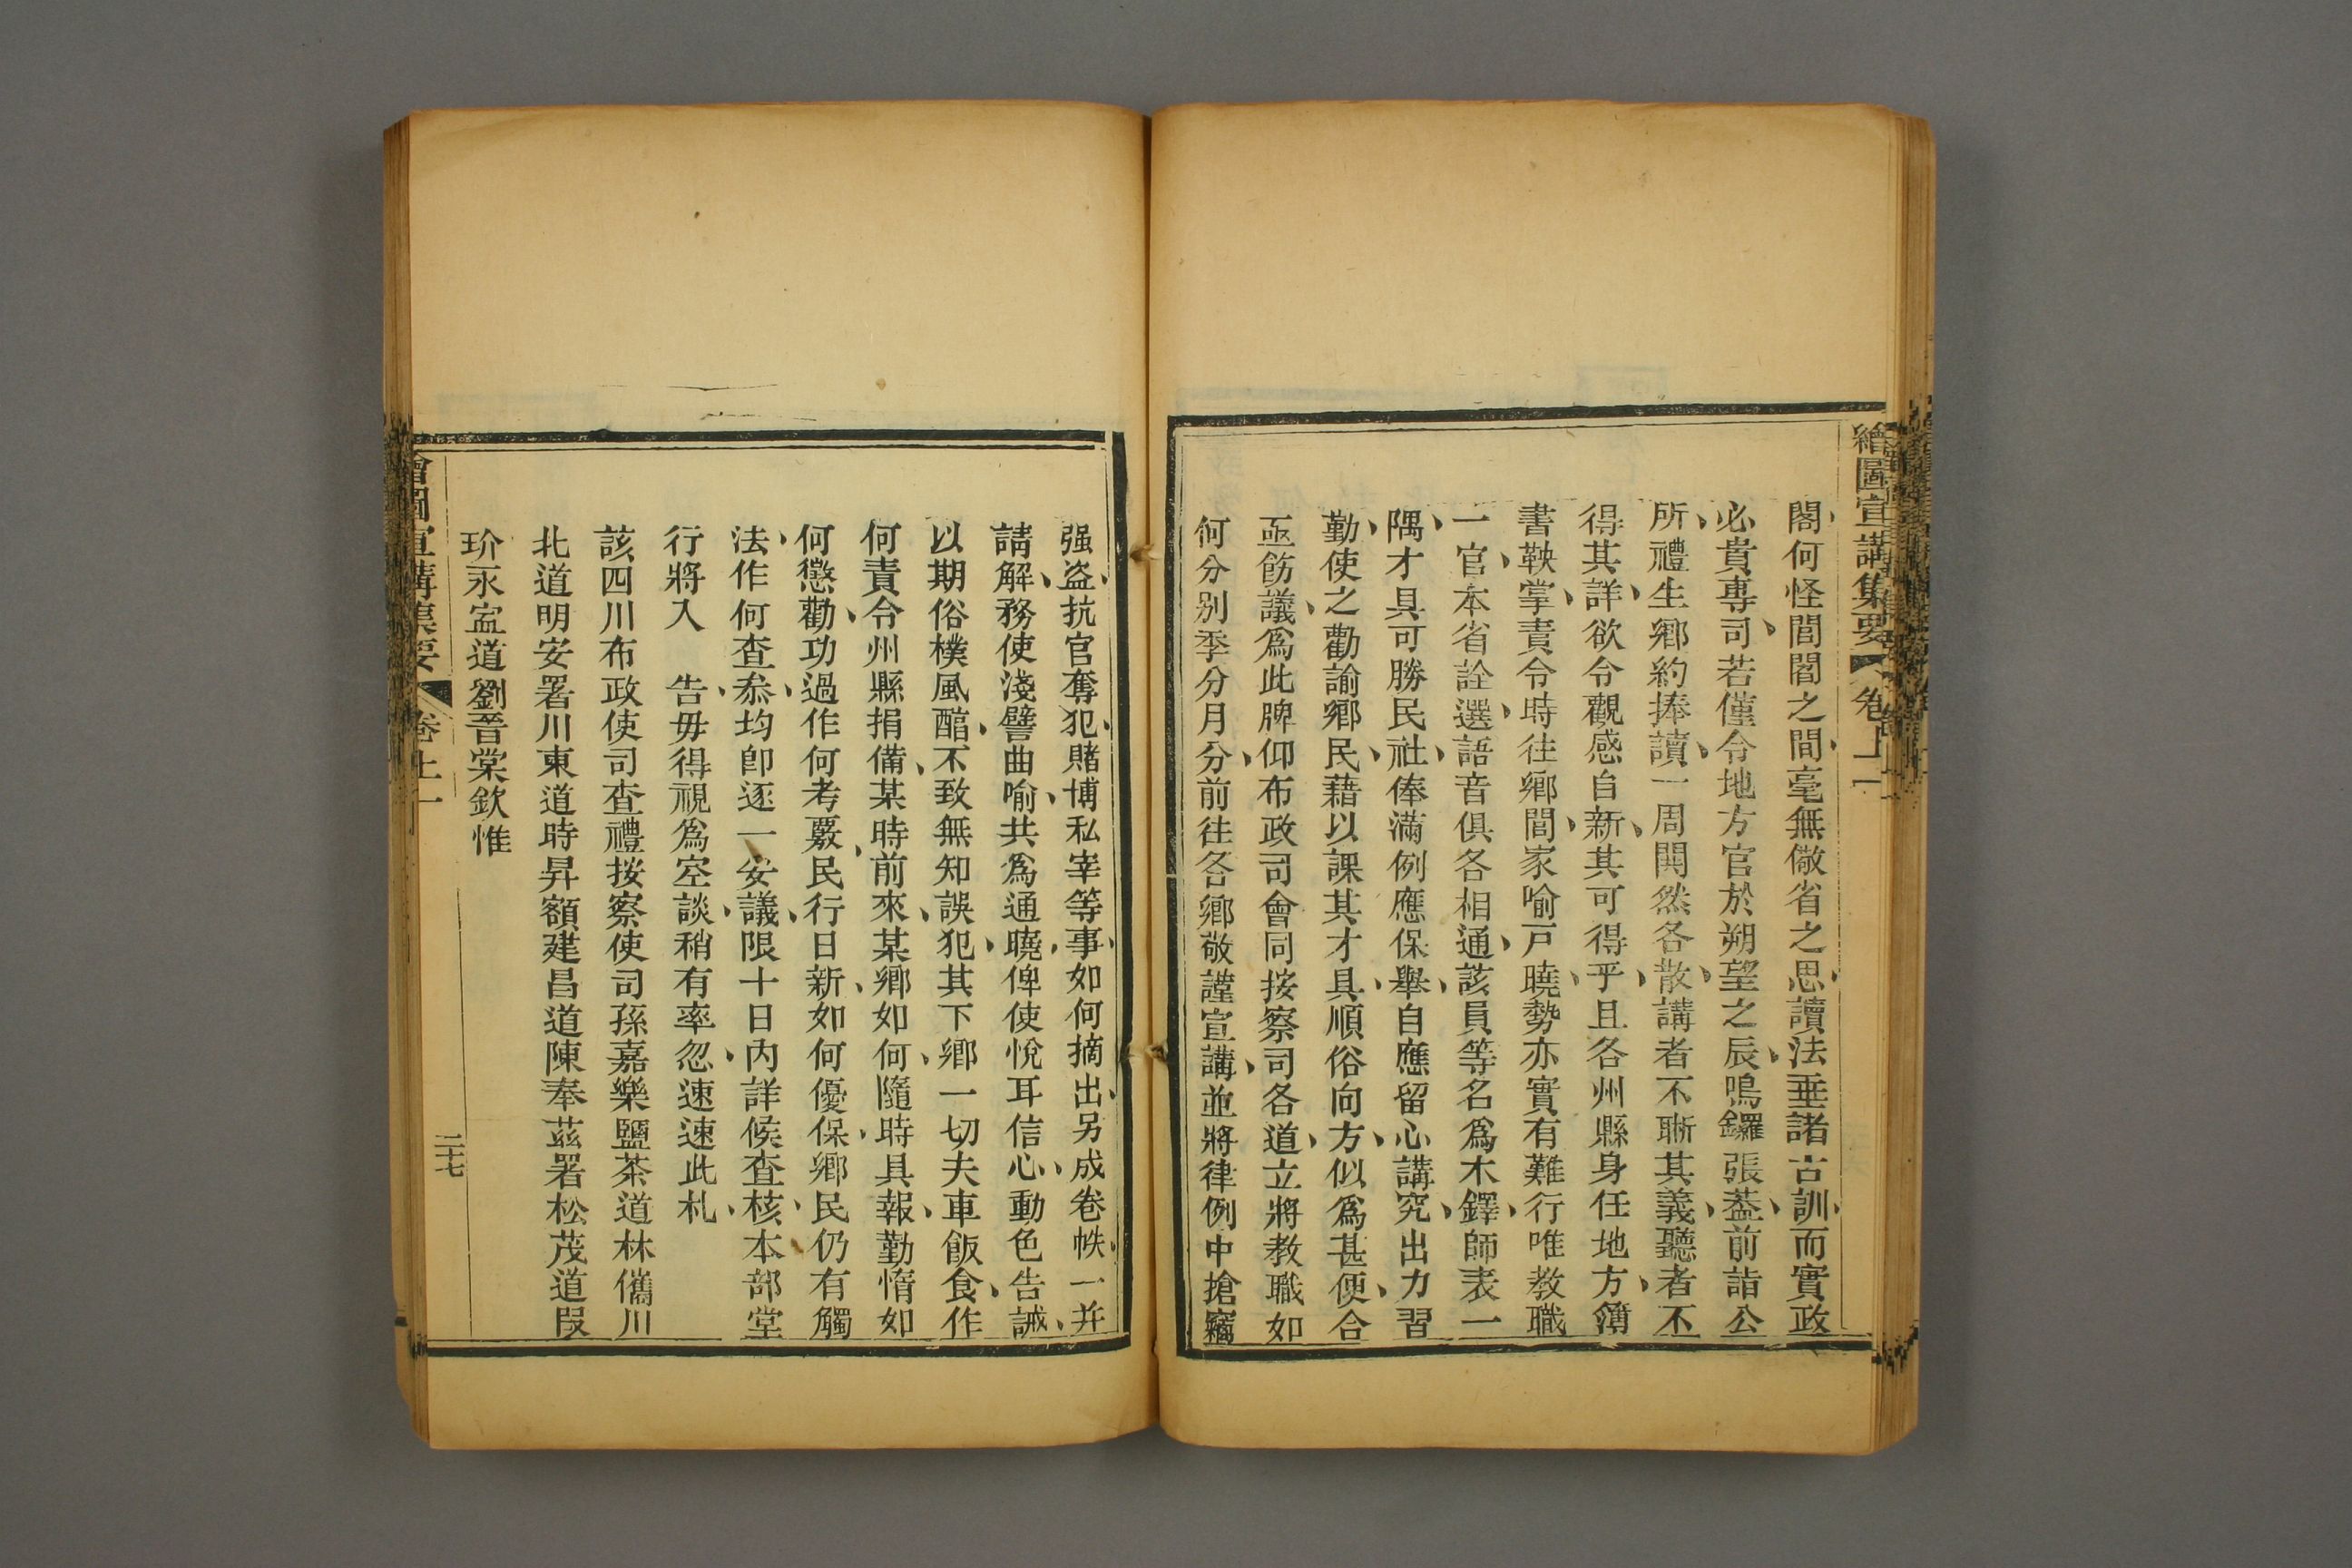 繪圖宣講集要 卷上一
閣何怪閭閻之間毫無儆省之思讀法垂諸古訓而實政
必貴專司若僅令地方官於朔望之辰鳴鑼張葢前詣公
所禮生鄉約捧讀一周閧然各散講者不晰其義聽者不
得其詳欲令觀感自新其可得乎且各州縣身任地方簿
書鞅掌責令時往鄉閭家喻戸曉勢亦實有難行唯教職
一官本省詮選語音俱各相通該員等名爲木鐸師表一
隅才具可勝民社俸滿例應保舉自應留心講究出力習
勤使之勸諭鄉民藉以課其才具順俗向方似爲甚便合
亟飭議爲此牌仰布政司會同按察司各道立將教職如
何分别季分月分前往各鄉敬謹宣講並將律例中搶竊
强盗抗官奪犯賭博私宰等事如何摘出另成卷帙一并
請解務使淺譬曲喻共爲通曉俾使悅耳信心動色告誡
以期俗樸風醕不致無知誤犯其下鄉一切夫車飯食作
何責令州縣捐備某時前來某鄉如何隨時具報勤惰如
何懲勸功過作何考覈民行日新如何優保鄉民仍有觸
法作何查叅均卽逐一妥議限十日内詳候查核本部堂
行將入 告毋得視爲空談稍有率忽速速此札
該四川布政使司查禮按察使司孫嘉樂鹽茶道林儁川
北道明安署川東道時昇額建昌道陳奉茲署松茂道段
玠永寍道劉晉棠欽惟
繪圖宣講集要 卷上一
二十七